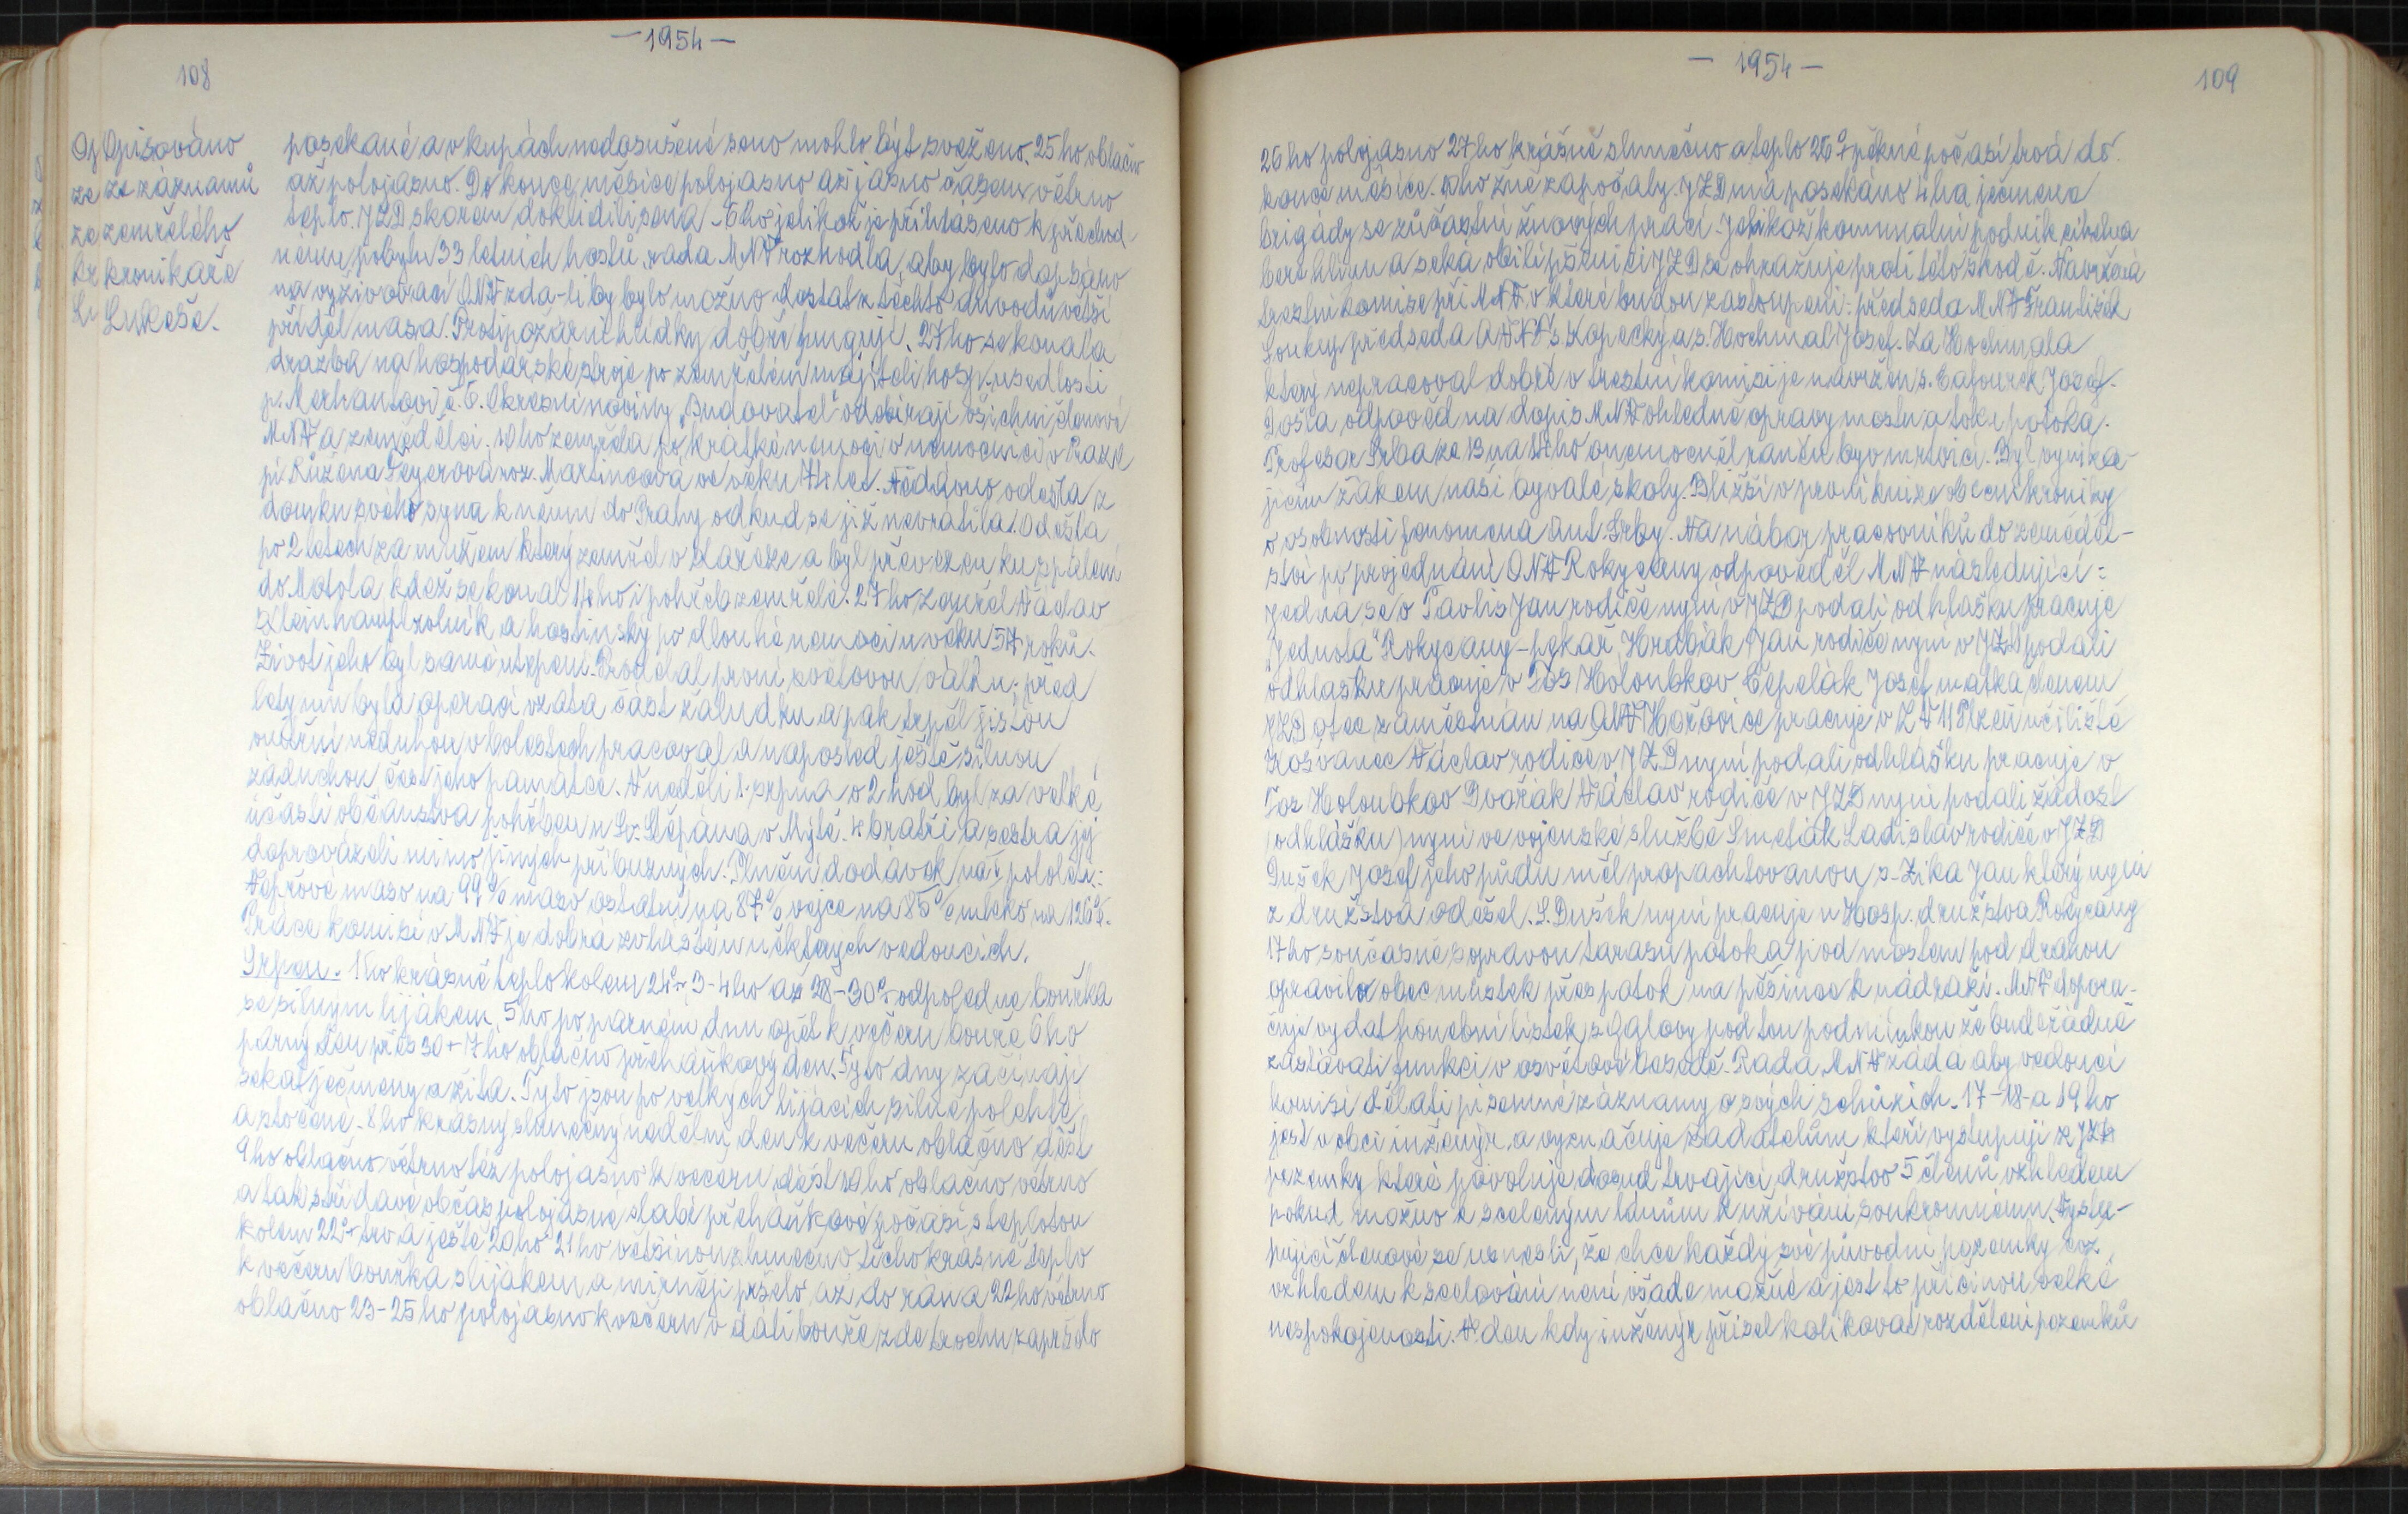 108
— 1954 —
Opisováno
ze záznamů
zemřelého
kronikáře
Lukeše.
posekané a v kupách nedosušené seno mohlo být svezeno. 25ho oblačno
až polojasno. Do konce měsíce polojasno až jasno časem větrno
teplo. JZD skoron doklidili sena - 6ho jelikož je přihlášeno k přechod-
nému pobytu 33 letních hostů, rada MNV rozhodla, aby bylo dopsáno
na vyživovací ONV zda-li by bylo možno dostat z těchto důvodů větší
příděl masa. Protipožární hlídky dobře fungují. 27ho se konala
dražba na hospodářské stroje po zemřelém majiteli hosp. usedlosti
p. Merhautovi č. 6. Okresní noviny „Budovatel" odebírají všichni členové
MNV a zemědělci. 10ho zemřela po krátké nemoci v nemocnici v Praze
pí Růžena Fegerová roz. Martincová ve věku 74 let. Nedávno odešla z
domku svého syna k němu do Prahy odkud se již nevrátila. Odešla
po 2 letech za mužem který zemřel v Kareze a byl převezen ku spálení
do Motola kdež se konal 14ho i pohřeb zemřelé. 27ho zemřel Václav
Kleinhampl rolník a hostinský po dlouhé nemoci u věku 57 roků.
Život jeho byl samé utrpení. Prodělal první světovou válku, před
lety mu byla operací vzata část žaludku a pak trpěl jistou
vnitřní neduhou v bolestech pracoval a naposled ještě silnou
záduchou, čest jeho památce. V neděli 1. srpna v 2 hod byl za velké
účasti občanstva pohřben u Sv. Štěpána v Mýtě. 4 bratři a sestra jej
doprovázeli mimo jiných příbuzných. Plnění dodávek na ½ pololetí:
Vepřové maso na 99% maso ostatní na 87% vejce na 85% mléko na 126%.
Práce komisí v MNV je dobrá zvláště u některých vedoucích.
Srpen. 1ho krásně teplo kolem 24°+, 3-4ho až 28-30°+ odpoledne bouřka
se silným lijákem, 5ho po parném dnu opět k večeru bouře 6ho
parný den přes 30+ 7ho oblačno přeháňkový den. Tyto dny začínají
sekat ječmeny a žita. Tyto jsou po velkých lijácích silně polehlé
a stočené. 8ho krásný slunečný nedělní den k večeru oblačno déšt
9ho oblačno větrno též polojasno k večeru déšt 10ho oblačno větrno
a tak střídavě občas polojasné slabé přeháňkové počasí s teplotou
kolem 22°+ trvá ještě 20ho 21ho většinou slunečno ticho krásné teplo
k večeru bouřka s lijákem a mírněji pršelo až do rána 22ho větrno
oblačno 23-25ho polojasno k večeru v dáli bouře, zde trochu zapršelo
— 1954 —
109
26ho polojasno 27ho krásně slunečno a teplo 26°+ pěkné počasí trvá do
konce měsíce. 10ho žně započaly. JZD má posekáno 4 ha ječmena
brigády se zúčastní žňových prací. Jelikož komunální podnik cihelna
bere hlínu a seká obilí pšenici JZD se ohražuje proti této škodě. Navržena
trestní komise při MNV v které budou zastoupeni: předseda MNV František
Loukey předseda s. Kopecký a s. Hochmal Josef. Za Hochmala
který nepracoval dobře v trestní komisi je navržen s. Cafourek Josef.
Došla odpověd na dopis MNV ohledně opravy mostu a toku potoka.
Profesor Srba ze 13 na 14ho onemocněl raněn byv mrtvicí. Byl vynika-
jícím žákem naší bývalé školy. Bližší v první knize obecní kroniky
o osobnosti fenomena Ant. Srby. Na nábor pracovníků do zeměděl-
ství po projednání ONV Rokycany odpověděl MNV následující:
Jedná se o Pavlis Jan rodiče nyní v JZD podali odhlášku pracuje
„Jednota" Rokycany - pekař, Hrabák Jan rodiče nyní v JZD podali
odhlášku pracuje v Tos Holoubkov Čepelák Josef matka členem
JZD otec zaměstnán na ONV Hořovice pracuje v ZV 11 Plzeň učiliště
Košvanec Václav rodiče v JZD nyní podali odhlášku pracuje v
Tos Holoubkov Dvořák Václav rodiče v JZD nyní podali žádost
(odhlášku) nyní ve vojenské službě Smeták Ladislav rodiče v JZD
Dušek Josef jeho půdu měl propachtovanou s. Zika Jan který nyní
z družstva odešel. S. Dušek nyní pracuje u Hosp. družstva Rokycany
17ho současně s opravou tarasu potoka pod mostem pod drahou
opravila obec můstek přes potok na pěšince k nádraží. MNV doporu-
čuje vydat honební lístek s. Galovy pod tou podmínkou že bude řádně
zastávati funkci v osvětové besedě. Rada MNV žádá aby vedoucí
komisí dělali písemné záznamy o svých schůzích. 17-18-a 19ho
jest v obci inženýr a vyznačuje žadatelům kteří vystupují z JZD
pozemky které povoluje dosud trvající družstvo 5 členů vzhledem
pokud možno k sceleným lánům k užívání soukromému. Vystu-
pující členové se usnesli, že chce každý své původní pozemky což
vzhledem k scelování není všade možné a jest to příčinou velké
nespokojenosti. V den kdy inženýr přišel kolíkovat rozdělení pozemků